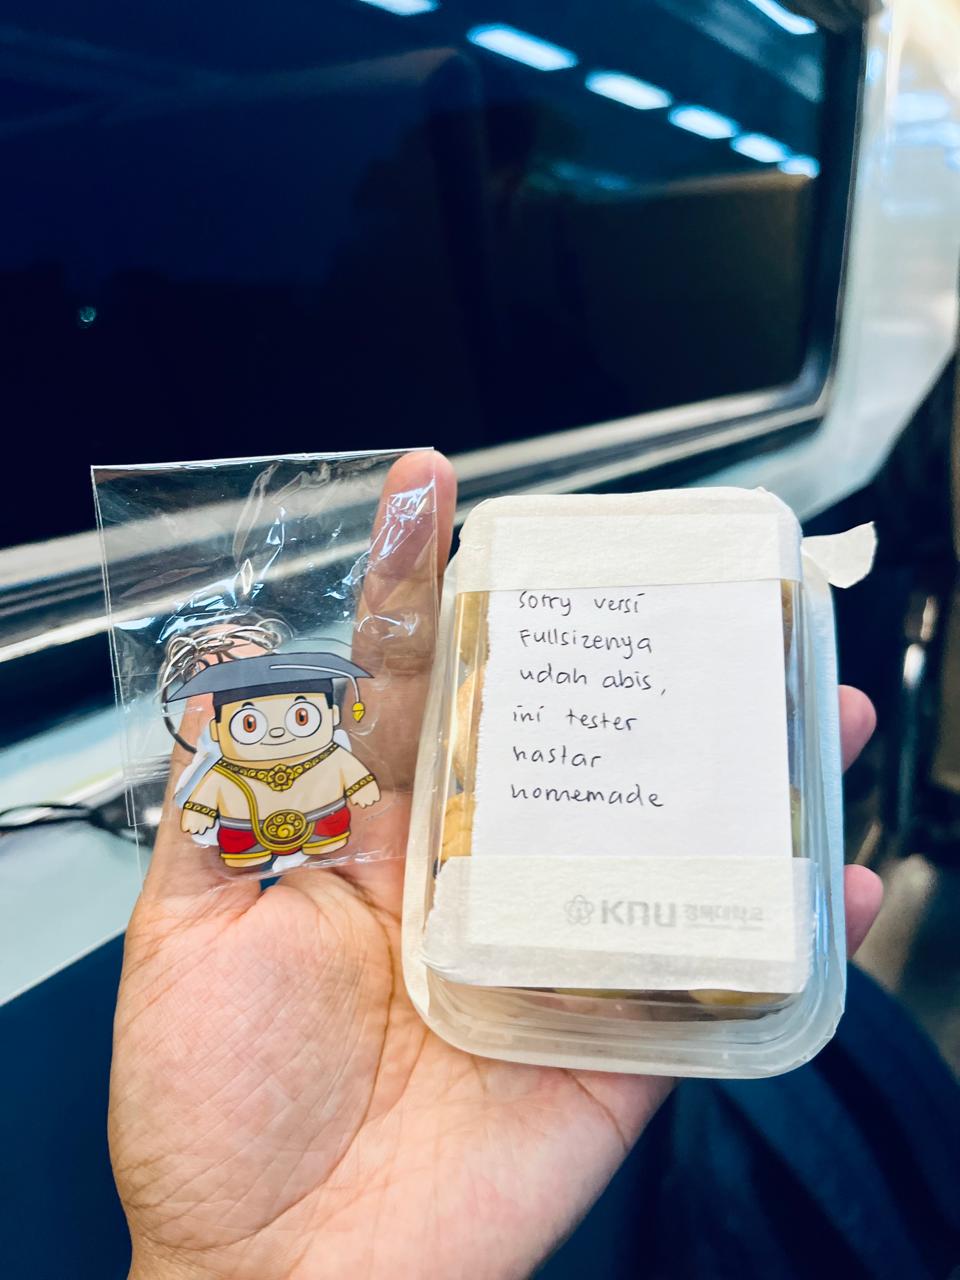 sorry versi
Fullsizenya
udah abis,
ini tester
nastar
homemade
KNU 경북대학교